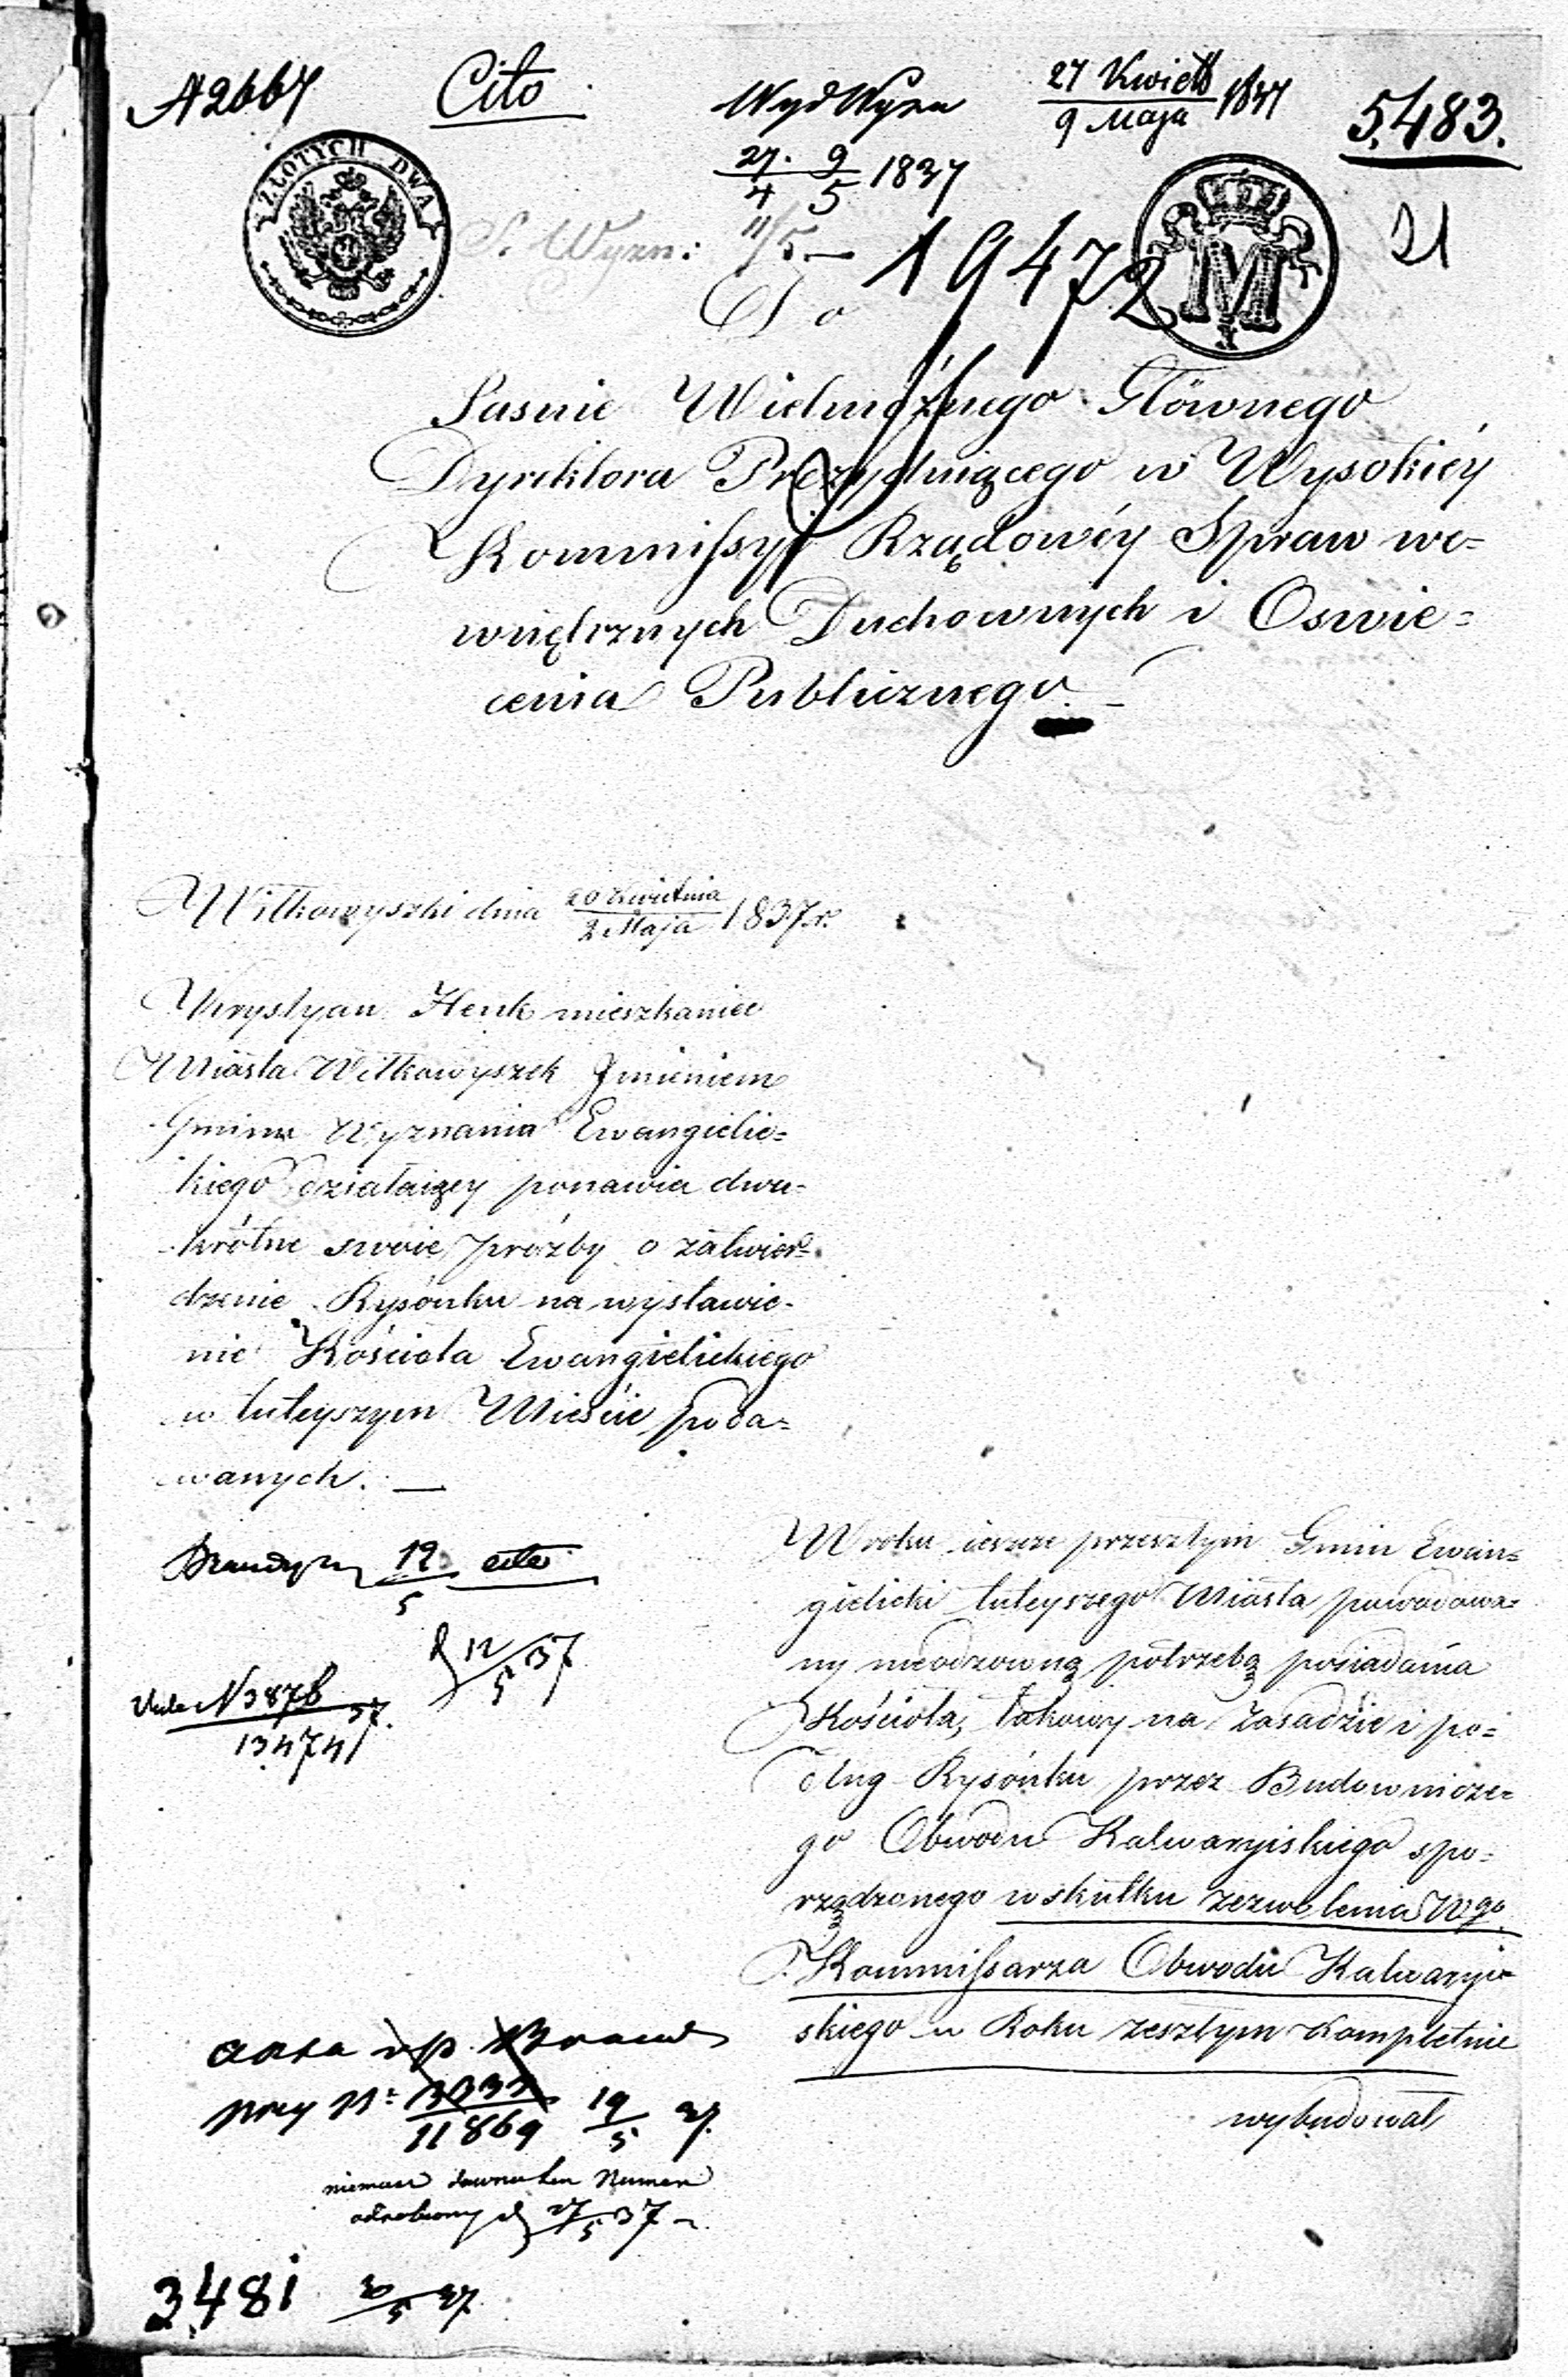 N 2667
Cito
Wyd Wyzn
27 Kwiet
9 Maja 1837
5,483.
27. 9
4 5 1837
ZŁOTYCH DWA
M
21
S. Wyzn: 11/5 —
19472
Do
Jasnie Wielmożnego Głównego
Dyrektora Prezyduiącego w Wysokiéy
Kommissyi Rządowéy Spraw we=
wnętrznych Duchownych i Oswie=
cenia Publicznego. —
Wiłkowyszki dnia 20 Kwietnia
2 Maja 1837.r.
Krystyan Henk mieszkaniec
Miasta Wiłkowyszek Jmieniem
Gminu Wyznania Ewangielic=
kiego działaiący ponawia dwu=
krótne swoie proźby o zatwier=
dzenie Rysónku na wystawie=
nie Kościoła Ewangielickiego
w tuteyszym Mieście poda=
wanych. —
12 cito
5
12/5 37
N 3876
13474 37.
W roku ieszcze przeszłym Gmin Ewan=
gielicki tuteyszego Miasta powodowa=
ny nieodzowną potrzebą posiadania
Kościoła, takowy na zasadzie i po=
dług Rysónku przez Budownicze=
go Obwodu Kalwaryiskiego spo=
rządzonego w skutku zezwolenia Wgo
Kommissarza Obwodu Kalwaryi=
skiego w Roku zeszłym kompletnie
wybudował
przy N:
11869 19
5 37.
Numer
odrobiony 27/5 37
3481 30/5 37.